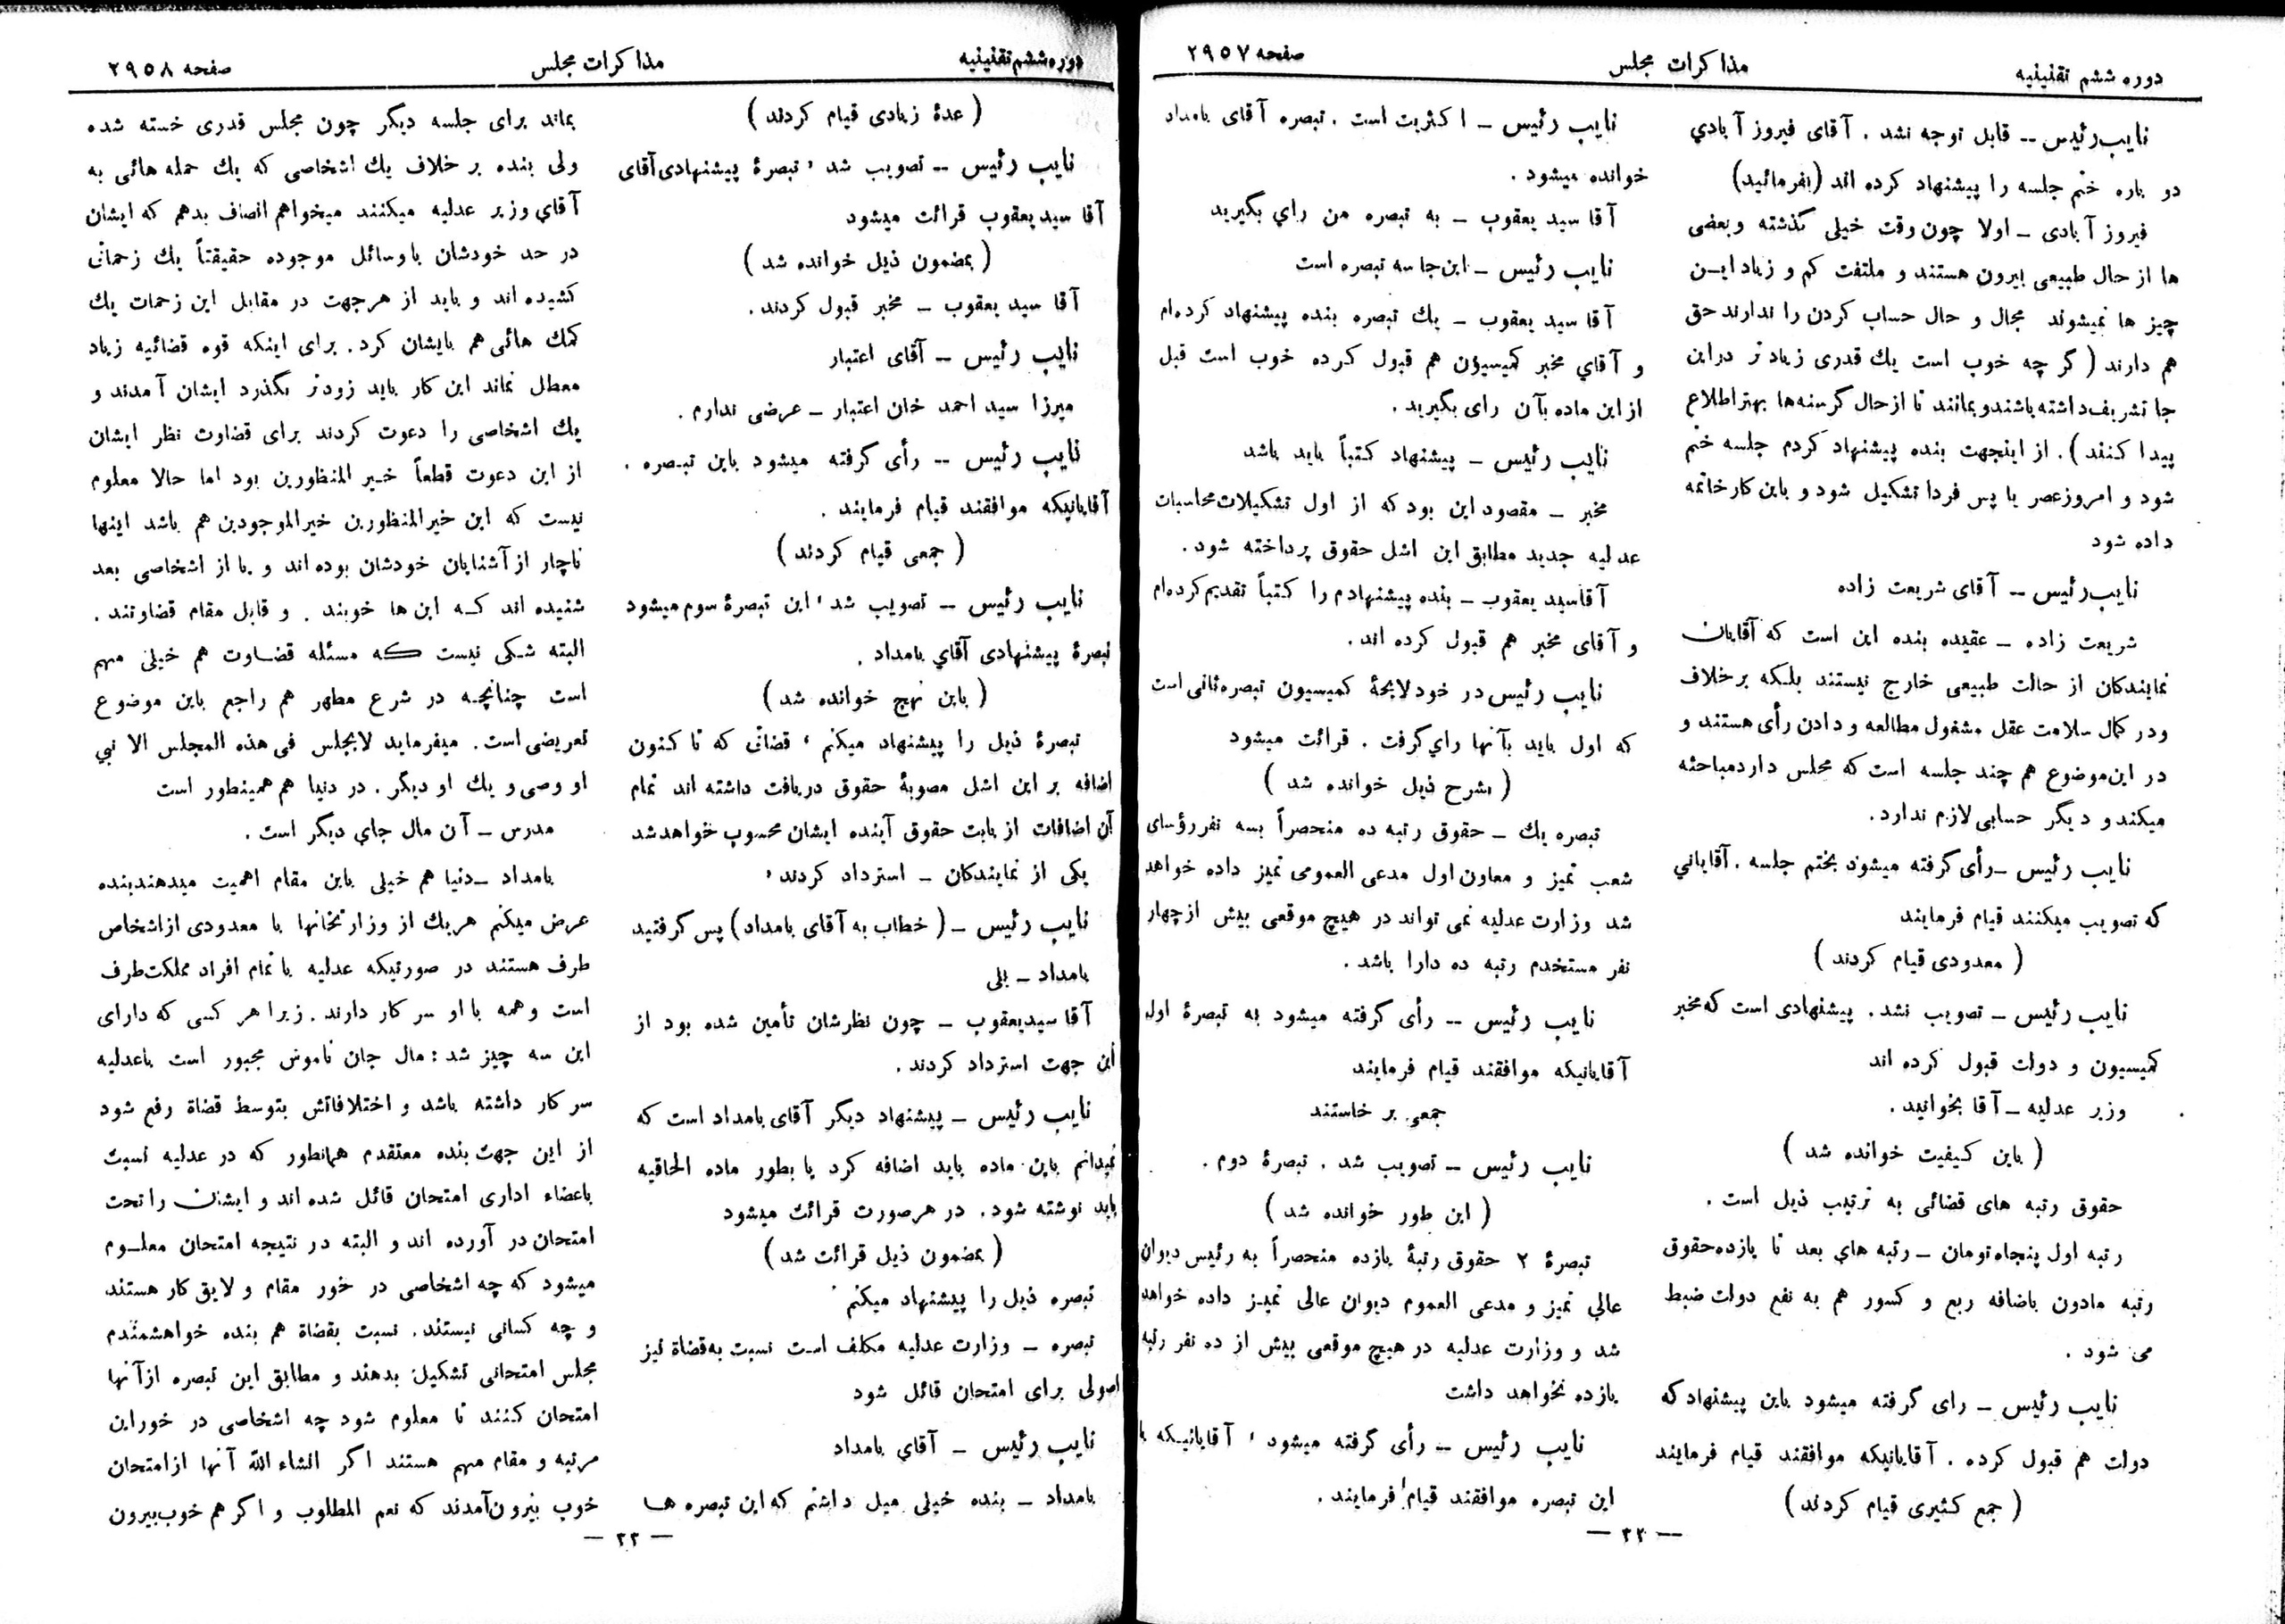 دوره ششم تقنینیه
مذاکرات مجلس
صفحه ۲۹۵۷
نایب‌رئیس -- قابل توجه نشد . آقای فیروز آبادي
دو باره ختم جلسه را پیشنهاد کرده اند (بفرمائید)
فیروز آبادی ـ اولا چون وقت خیلی گذشته وبعضی
ها از حال طبیعی بیرون هستند و ملتفت کم و زیاد ایـن
چیز ها نمیشوند مجال و حال حساب کردن را ندارند حق
هم دارند ( گر چه خوب است یك قدری زیاد تر دراین
جا تشریف‌داشته‌باشندو‌بمانند تا ازحال گرسنه‌ها بهتر‌اطلاع
پیدا کنند ) . از اینجهت بنده پیشنهاد کردم جلسه ختم
شود و امروزعصر یا پس فردا تشکیل شود و باین‌کارخاتمه
داده شود
نایب‌رئیس -- آقای شریعت زاده
شریعت زاده ـ عقیده بنده این است که آقایان
نمایندکان از حالت طبیعی خارج نیستند بلـکه برخلاف
ودر کمال سلامت عقل مشغول مطالعه و دادن رأی هستند و
در این‌موضوع هم چند جلسه است‌که مجلس داردمباحثه
میکند و دیگر حسابی لازم ندارد .
نایب رئیس ـ رأی گرفته میشود بختم جلسه . آقایاني
که تصویب میکنند قیام فرمایند
( معدودی قیام کردند )
نایب رئیس ـ تصویب نشد . پیشنهادی است که‌مخبر
کمیسیون و دولت قبول کرده اند
وزیر عدلیه ـ آقا بخوانید .
( باین کیفیت خوانده شد )
حقوق رتبه های قضائی به ترتیب ذیل است .
رتبه اول پنجاه‌تومان ـ رتبه هاي بعد تا یازده‌حقوق
رتبه مادون باضافه ربع و کسور هم به نفع دولت ضبط
می شود .
نایب رئیس ـ رای گرفته میشود باین پیشنهادکه
دولت هم قبول کرده . آقایانیکه موافقند قیام فرمایند
( جمع کثیری قیام کردند )
نایب رئیس ـ اکثریت است . تبصره آقای بامداد
خوانده میشود .
آقا سید یعقوب ـ به تبصره من راي بگیرید
نایب رئیس ـ این‌جا سه تبصره است
آقا سید یعقوب ـ یك تبصره بنده پیشنهاد کرده‌ام
و آقاي مخبر کمیسیون هم قبول کرده خوب است قبل
از این ماده بآن رای بگیرید .
نایب رئیس ـ پیشنهاد کتباً باید باشد
مخبر ـ مقصود این بود که از اول تشکیلات‌محاسبات
عدلیه جدید مطابق این اشل حقوق پرداخته شود .
آقاسید یعقوب ـ بنده پیشنهادم را کتباً تقدیم‌کرده‌ام
و آقای مخبر هم قبول کرده اند .
نایب رئیس در خود لایحهٔ کمیسیون تبصره‌ثانی است
که اول باید بآنها راي‌گرفت . قرائت میشود
( بشرح ذیل خوانده شد )
تبصره یك ـ حقوق رتبه ده منحصراً بسه نفررؤسای
شعب تمیز و معاون اول مدعی العمومی تمیز داده خواهد
شد وزارت عدلیه نمی تواند در هیچ موقعی بیش ازچهار
نفر مستخدم رتبه ده دارا باشد .
نایب رئیس -- رأی گرفته میشود به تبصرهٔ اول
آقایانیکه موافقند قیام فرمایند
جمعی بر خاستند
نایب رئیس ـ تصویب شد . تبصرهٔ دوم .
( این طور خوانده شد )
تبصرهٔ ۲ حقوق رتبهٔ یازده منحصراً به رئیس دیوان
عالي تمیز و مدعی العموم دیوان عالی تمیز داده خواهد
شد و وزارت عدلیه در هیچ موقعی بیش از ده نفر رتبه
یازده نخواهد داشت
نایب رئیس -- رأی گرفته میشود ، آقایانیـکه با
این تبصره موافقند قیام فرمایند .
دوره‌ششم‌تقنینیه
مذاکرات مجلس
صفحه ۲۹۵۸
( عدهٔ زیادی قیام کردند )
نایب رئیس -- تصویب شد ، تبصرهٔ پیشنهادی آقای
آقا سیدیعقوب قرائت میشود
( بمضمون ذیل خوانده شد )
آقا سید یعقوب ـ مخبر قبول کردند .
نایب رئیس -- آقای اعتبار
میرزا سید احمد خان اعتبار ـ عرضی ندارم .
نایب رئیس -- رأی گرفته میشود باین تبـصره .
آقایانیکه موافقند قیام فرمایند .
( جمعی قیام کردند )
نایب رئیس -- تصویب شد ، این تبصرهٔ سوم میشود
تبصرهٔ پیشنهادی آقاي بامداد .
( باین نهج خوانده شد )
تبصرهٔ ذیل را پیشنهاد میکنم ، قضاتی که تا کنون
اضافه بر این اشل مصوبهٔ حقوق دریافت داشته اند تمام
آن اضافات از بابت حقوق آینده ایشان محسوب خواهدشد
یکی از نمایندکان ـ استرداد کردند ،
نایب رئیس ـ ( خطاب به آقای بامداد ) پس گرفتید
بامداد ـ بلی
آقا سیدیعقوب ـ چون نظرشان تأمین شده بود از
این جهت استرداد کردند .
نایب رئیس ـ پیشنهاد دیگر آقای بامداد است که
نمیدانم باین ماده باید اضافه کرد یا بطور ماده الحاقیه
باید نوشته شود . در هرصورت قرائت میشود
( بمضمون ذیل قرائت شد )
تبصره ذیل را پیشنهاد میکنم
تبصره ـ وزارت عدلیه مکلف است نسبت به‌قضاة نیز
اصولی برای امتحان قائل شود
نایب رئیس ـ آقاي بامداد
بامداد ـ بنده خیلی میل داشتم که این تبصره هـا
بماند برای جلسه دیگر چون مجلس قدری خسته شده
ولی بنده بر خلاف یك اشخاصی که یك حمله هائی به
آقاي وزیر عدلیه میکنند میخواهم انصاف بدهم که ایشان
در حد خودشان با وسائل موجوده حقیقتاً یك زحماتی
کشیده اند و باید از هر جهت در مقابل این زحمات یك
کمك هائی هم بایشان کرد . برای اینکه قوه قضائیه زیاد
معطل نماند این کار باید زودتر بگذرد ایشان آمدند و
یك اشخاصی را دعوت کردند برای قضاوت نظر ایشان
از این دعوت قطعاً خـیر المنظورین بود اما حالا معلوم
نیست که این خیرالمنظورین خیرالموجودین هم باشد اینها
ناچار از آشنایان خودشان بوده اند و یا از اشخاصی بعد
شنیده اند کـه این ها خوبند . و قابل مقام قضاوتند .
البته شـکی نیست که مسئله قضـاوت هم خیلی مهم
است چنانچـه در شرع مطهر هم راجع باین موضوع
تعریضی است . میفرماید لایجلس فی هذه المجلس الا نبي
او وصی و یك او دیگر . در دنیا هم همینطور است
مدرس ـ آن مال جاي دیگر است .
بامداد ـ دنیا هم خیلی باین مقام اهمیت میدهندبنده
عرض میکنم هر یك از وزارتخانها با معدودی ازاشخاص
طرف هستند در صورتیکه عدلیه با تمام افراد مملکت‌طرف
است و همه با او سر کار دارند . زیرا هر کسی که دارای
این سه چیز شد : مال جان ناموش مجبور است باعدلیه
سر کار داشته باشد و اختلافاتش بتوسط قضاة رفع شود
از این جهت بنده معتقدم همانطور که در عدلیه نسبت
باعضاء اداری امتحان قائل شده اند و ایشان را تحت
امتحان در آورده اند و البته در نتیجه امتحان معلـوم
میشود که چه اشخاصی در خور مقام و لایق کار هستند
و چه کسانی نیستند . نسبت بقضاة هم بنده خواهشمندم
مجلس امتحانی تشکیل بدهند و مطابق این تبصره از آنها
امتحان کنند تا معلوم شود چه اشخاصی در خور‌این
مرتبه و مقام مهم هستند اگر انشاءالله آنها ازامتحان
خوب بیرون‌آمدند که نعم المطلوب و اگر هم خوب‌بیرون
— ۲۲ —
— ۲۳ —